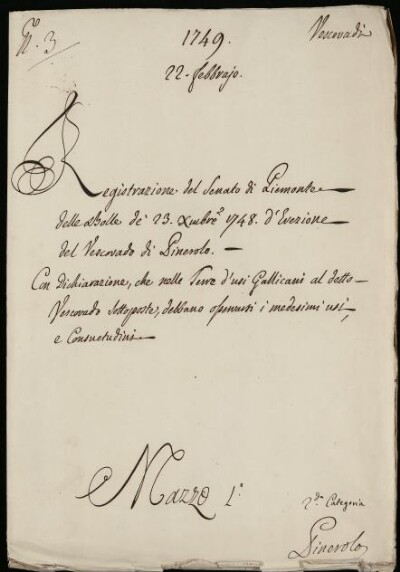 N.° 3
1749.
Vescovadi
22. Febbrajo.
Registrazione del Senato di Piemonte
delle Bolle de' 23. Xmbre 1748. d'Erezione
del Vescovado di Pinerolo. —
Con dichiarazione, che nelle Terre d'usi Gallicani al detto
Vescovado sottoposte, debbano osservarsi i medesimi usi,
e Consuetudini
Mazzo 1.°
2.da Categoria
Pinerolo